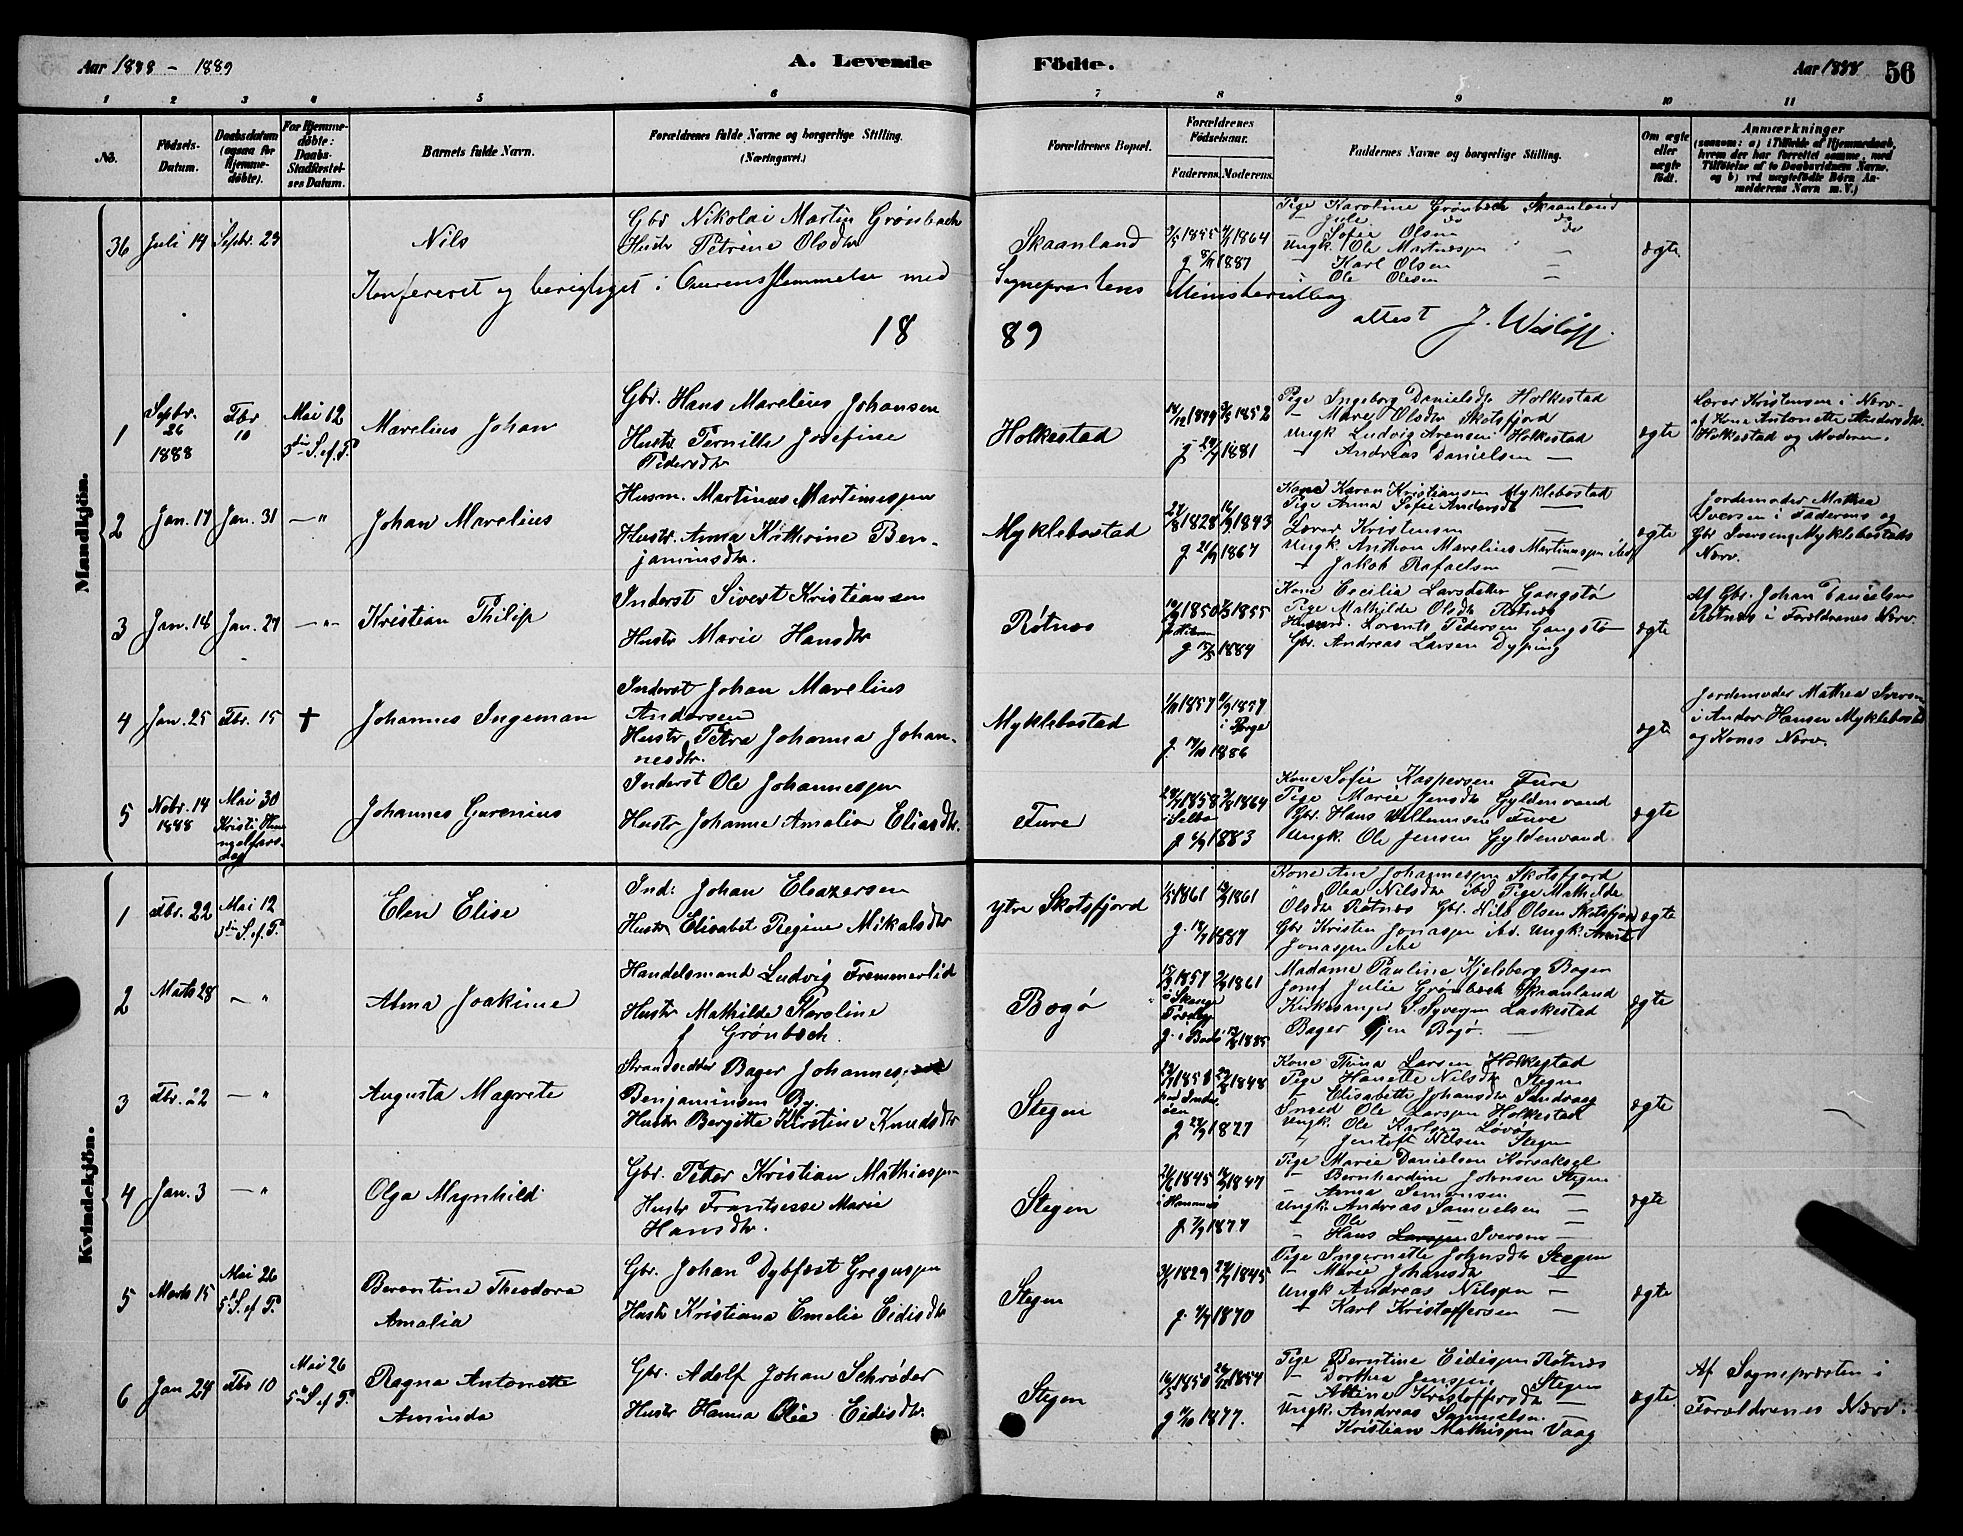 Aar 1888 - 1889
A. Levende
Födte.
Aar 1888
56
1 2 3 4 5 6 7 8 9 10 11
No.
Födsels-Datum.
Daabsdatum (ogsaa for Hjemme-döbte).
For Hjemme-döbte: Daabs-Stadfæstel-ses Datum.
Barnets fulde Navn.
Forældrenes fulde Navne og borgerlige Stilling. (Næringsvei.)
Forældrenes Bopæl.
Forældrenes Födselsaar.
Faderens. Moderens.
Faddernes Navne og borgerlige Stilling.
Om ægte eller uægte födt.
Anmærkninger
(saasom: a) i Tilfælde af Hjemmedaab, hvem der har forrettet samme, med Tilföielse af to Daabsvidners Navne. og b) ved uægtefödte Börn An-melderens Navn m. V.)
Mandkjön.
36 Juli 14 Sepbr. 23
Nils
Gbr Nikolai Martin Grönbech
Hustr Petrine Olsdtr
Skaanland
1845 1864
g 1887
Pige Karoline Grönbech Skaanland
- Julie do
- Sofie Olsen do
Ungk Ole Martinespen -
- Karl Olsen -
Ole Olesen -
ægte
Konfereret og berigtiget i Overensstemmelse med
Sogneprestens Ministerialbog
attest J. Wisløff.
18 89
1 Sepbr. 26 1888
Fbr 10
Mai 12
5te S. ef. P.
Marelius Johan
Gbr. Hans Marelius Johansen
Hustr Pernille Josefine
Pedersdtr
Holkestad
1849 1852
g 1881
Pige Ingeborg Danielsdtr Holkestad
- Mare Olsdtr Skotsfjord
Ungk Ludvig Arensen Holkestad
- Andreas Danielsen -
ægte
Lærer Kristensen i Nærv-
af Kone Antonette Andersdtr
Holkestad og Moderen.
2 Jan. 17 Jan. 31 - "
Johan Marelius
Husm. Martinus Martinespen
Hustr. Anna Kathrine Ben-
jaminsdtr.
Myklebostad
1828 1843
g 1867
Kone Karen Kristiansen Myklebostad
Pige Anna Sofie Andersdtr -
Lærer Kristensen -
Ungk. Anthon Marelius Martinuspen ibd
- Jakob Rafaelsen -
ægte
Jordemoder Mathea
Iversen i Faderens og
Gbr Iversens Myklebostads
Nærv.
3 Jan. 18 Jan. 27 - "
Kristian Philip
Inderst Sivert Kristiansen
Hustr Marie Hansdtr
Røtnes
1850 1855
g 1884
Kone Cecilia Larsdatter Gangstø
Pige Mathilde Olsdtr Røtnes
Husmd. Lorents Pedersen Gangstø
Gbr. Andreas Larsen Dyping
ægte
Af Gbr. Johan Danielsen
Røtnes i Forældrenes Nærv.
4 Jan. 25 Fbr. 15 †
Johannes Ingeman
Inderst Johan Marelius
Andersen
Hustr Petra Johanna Johan-
nesdtr.
Myklebostad
1857 1857
g. 1886
ægte
Jordemoder Mathea Iversen
i Andor Hansen Myklebostad
og Kones Nærv.
5 Nobr. 14 1888
Mai 30
Kristi Him-
melfarts-
dag
Johannes Garenius
Inderst Ole Johannespen
Hustr Johanne Amalia Eliasdtr.
Fure
1858 1864
g 1883
Kone Sofie Kaspersen Fure
Pige Marie Jensdtr Gyldenvand
Gbr. Hans Willumsen Fure
Ungk. Ole Jensen Gyldenvand.
ægte
Kvindekjön.
1 Fbr. 22 Mai 12
3die S. ef. P.
Elen Elise
Ind. Johan Eleazersen
Hustr Elisabet Regine Mikalsdtr
ytre Skotsfjord
1861 1861
g. 1887
Kone Ane Johannespen Skotsfjord
" Olea Nilsdtr ibd Pige Mathilde
Olsdtr Røtnes Gbr. Nils Olsen Skotsfjord
Gbr Kristen Jonaspen ibd. Ungk. Arnt
Jonaspen ibd
ægte
2 Marts 28 - "
Alma Joakime
Handelsmand Ludvig Fremmerlid
Hustr Mathilde Karoline
f Grönbech.
Bogø
1857 1861
g. i Bodø 1885
Madame Pauline Kjelsberg Bogen
Jomf Julie Grönbech Skaanland
Kirkesanger S. Syversen Laskestad
Bager Bogø. -
ægte
3 Fbr. 22 - "
Augusta Magrete
Strandsidder Bager Johannes
Benjaminsen By.
Hustr Bergitte Kirstine Knudsdtr
Stegen
1858 1848
g 1877
Kone Thina Larsen Holkestad
Pige Hanette Nilsdtr Stegen
- Elisabette Johansdtr Sandvaag
Smed Ole Larspen Holkestad
Ungk. Ole Karlsen Løvø
" Jentoft Nilsen Stegen
ægte
4 Jan. 3 - "
Olga Magnhild
Gbr. Peter Kristian Mathiaspen
Hustr Frantsesse Marie
Hansdtr.
Stegen
1845 1847
g. 1877
Pige Marie Danielsen Korsaksel
- Bernhardine Johnsen Stegen
- Anna Simonsen -
Ungk. Andreas Samuelsen -
- Ole -
- Hans Larspen Iversen -
ægte
5 Marts 15 Mai 26
5te S. ef P.
Berentine Theodora
Amalia
Gbr. Johan Dybfest Greguspen
Hustr Kristiana Emelie Eidisdtr
Stegen
1829 1845
g. 1870
Pige Ingernette Johnsdtr Stegen
- Marie Johansdtr -
Ungk Andreas Nilspen -
- Karl Kristoffersen -
ægte
6 Jan 24 Fbr 10
Mai 26
5te S. ef P.
Ragna Antonette
Aminda
Gbr. Adolf Johan Schrøder
Hustr Hanna Olia Eidisdtr.
Stegen
1850 1854
g 1877.
Pige Berntine Eidispen Røtnes
- Dorthea Jenspen Stegen
- Altine Kristoffersdtr -
Ungk. Andreas Samuelsen -
- Kristian Mathispen Vaag
ægte
Af Sognepræsten i
Forældrenes Nærv.